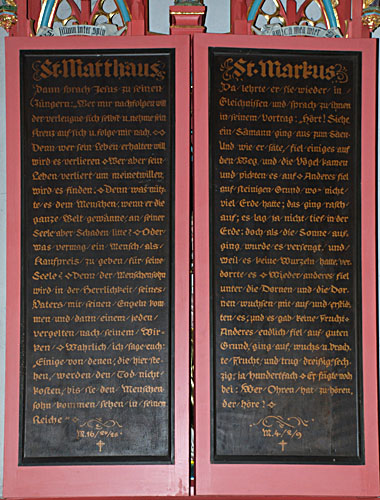 St·Matthäus
Dann sprach Jesus zu seinen
Jüngern: Wer mir nachfolgen will
der verleugne sich selbst u. nehme sein
Kreuz auf sich u. folge mir nach.
Denn wer sein Leben erhalten will
wird es verlieren Wer aber sein
Leben verliert um meinetwillen,
wird es finden. Denn was nütz-
te es dem Menschen, wenn er die
ganze Welt gewänne, an seiner
Seele aber Schaden litte? Oder
was vermag ein Mensch als
Kaufpreis zu geben für seine
Seele? Denn der Menschensohn
wird in der Herrlichkeit seines
Vaters mit seinen Engeln kom
men und dann einem jeden
vergelten nach seinem Wir-
ken Wahrlich ich sage euch:
Einige von denen, die hier ste-
hen, werden den Tod nicht
kosten, bis sie den Menschen-
sohn kommen sehen in seinem
Reiche
St·Markus
Da lehrte er sie wieder in
Gleichnissen und sprach zu ihnen
in seinem Vortrag: Hört! Siehe
ein Sämann ging aus zum Säen
Und wie er säte, fiel einiges auf
den Weg, und die Vögel kamen
und pickten es auf Anderes fiel
auf steinigen Grund wo nicht
viel Erde hatte; das ging rasch
auf; es lag ja nicht tief in der
Erde; doch als die Sonne auf-
ging, wurde es versengt, und
weil es keine Wurzeln hatte, ver-
dorrte es Wieder anderes fiel
unter die Dornen und die Dor-
nen wuchsen mit auf und erstick-
ten es; und es gab keine Frucht
Anderes endlich fiel auf guten
Grund, ging auf, wuchs u. brach-
te Frucht, und trug dreißig- sech-
zig- ja hundertfach Er fügte noch
bei: Wer Ohren hat zu hören,
der höre!
M. 4/2/9